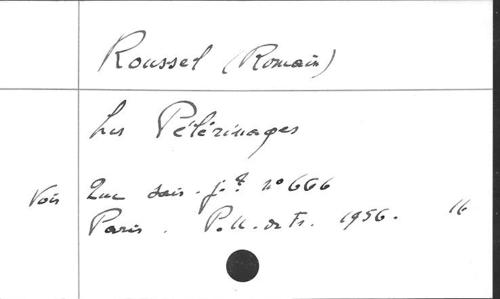 Roussel (Romain)
Les Pélérinages
Voir Que sais-je? n° 666
Paris. P.U. de Fr. 1956. 16